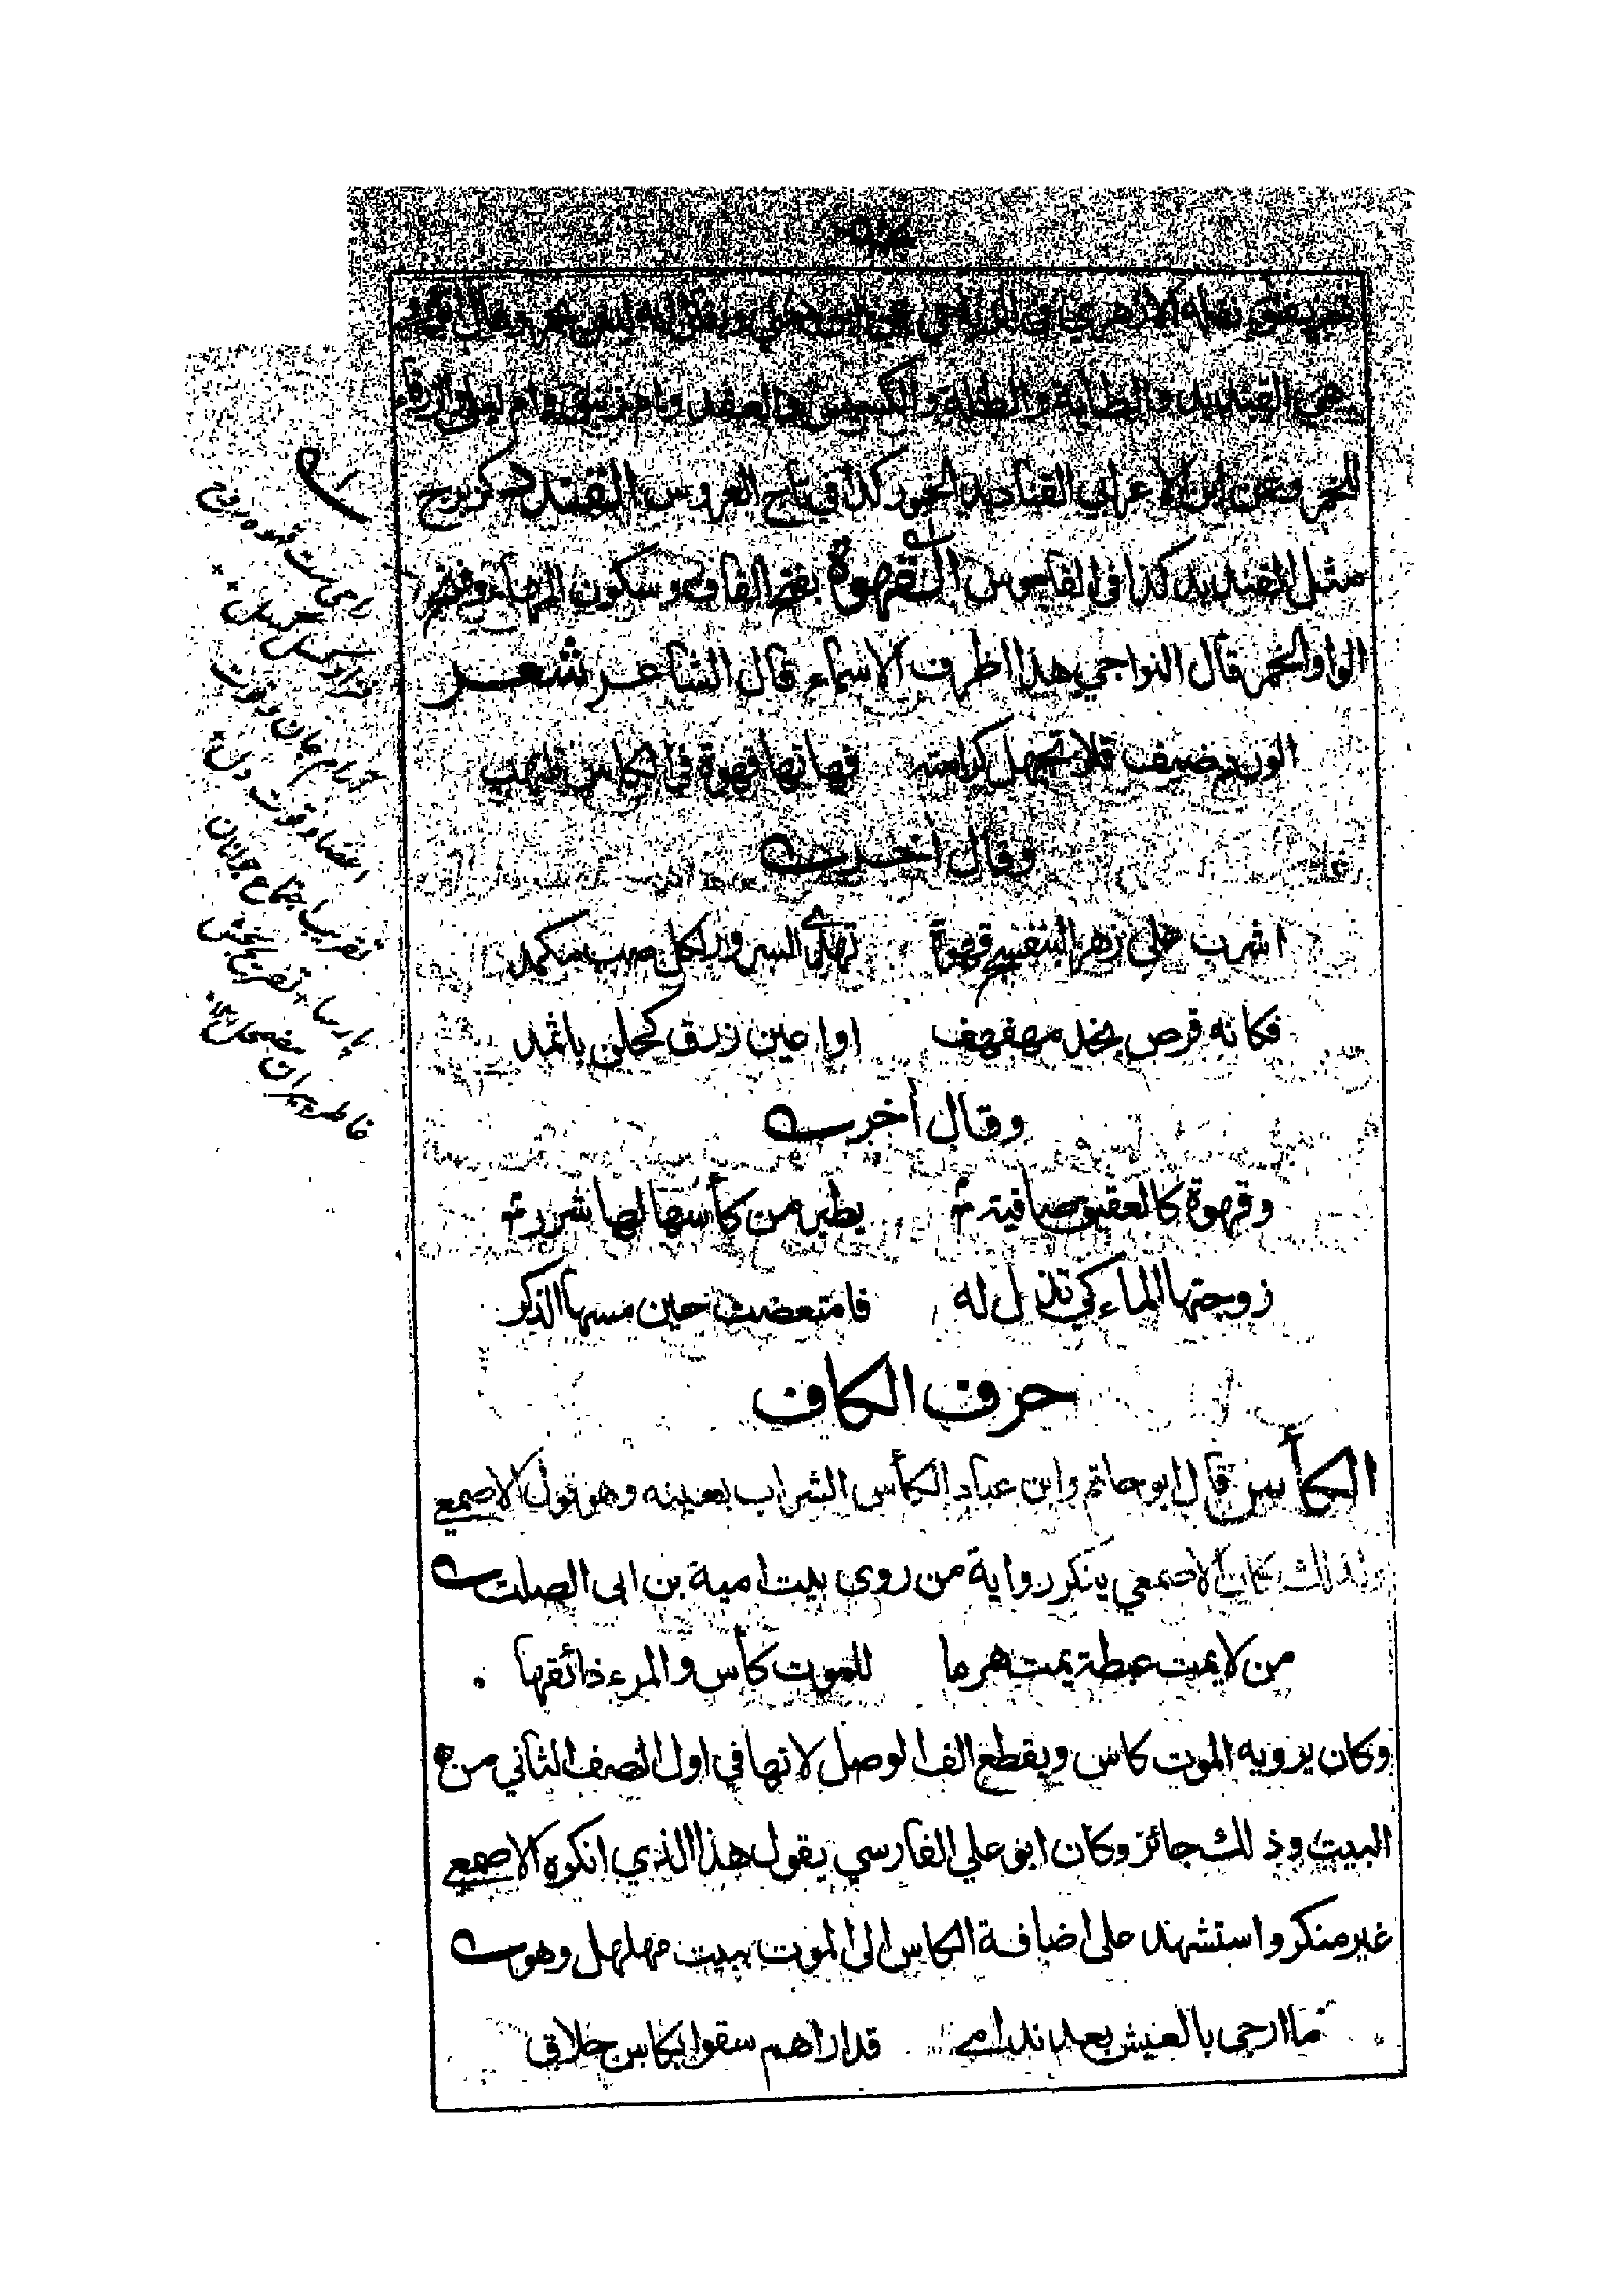 ثم يفتق نقله الازهري في الرباعي عن ابن ويقال انه ليس بخمر وقال
هي القنديد والطابة والطلة والكسيس والعقد وام ليلى والزرقاء
للخمر وعن ابن الاعرابي القناديد الخمور كذا في تاج العروس القندد كزبرج
مثل القنديد كذا في القاموس القهوة بفتح القاف وسكون الهاء وفتح
الواو الخمر قال النواجي هذا اظرف الاسماء قال الشاعر شعر
الورد ضيف فلا تجهل كرامته فهاتها قهوة في الكاس تلتهب
وقال اخر
اشرب على زهر البنفسج قهوة تهدي السرور لكل صب مكمد
فكانه قرص بخد مهفهف او اعين زرق كحلن باثمد
وقال أخر
وقهوة كالعقيق صافية يطير من كأسها لها شرر
زوجتها الماء كي تذل له فامتعضت حين مسها الذكر
حرف الكاف
الكأس قال ابو حاتم وابن عباد الكأس الشراب بعينه وهو قول الاصمعي
ولذلك كان الاصمعي ينكر رواية من روى بيت امية بن ابى الصلت
من لا يمت عبطة يمت هرما للموت كأس والمرء ذائقها
وكان يرويه الموت كاس ويقطع الف الوصل لانها في اول النصف الثاني من
البيت وذلك جائز وكان ابو علي الفارسي يقول هذا الذي انكره الاصمعي
غير منكر واستشهد على اضافة الكاس الى الموت ببيت مهلهل وهو
ما ارجى بالعيش بعد ندامى قد اراهم سقوا بكاس حلاق